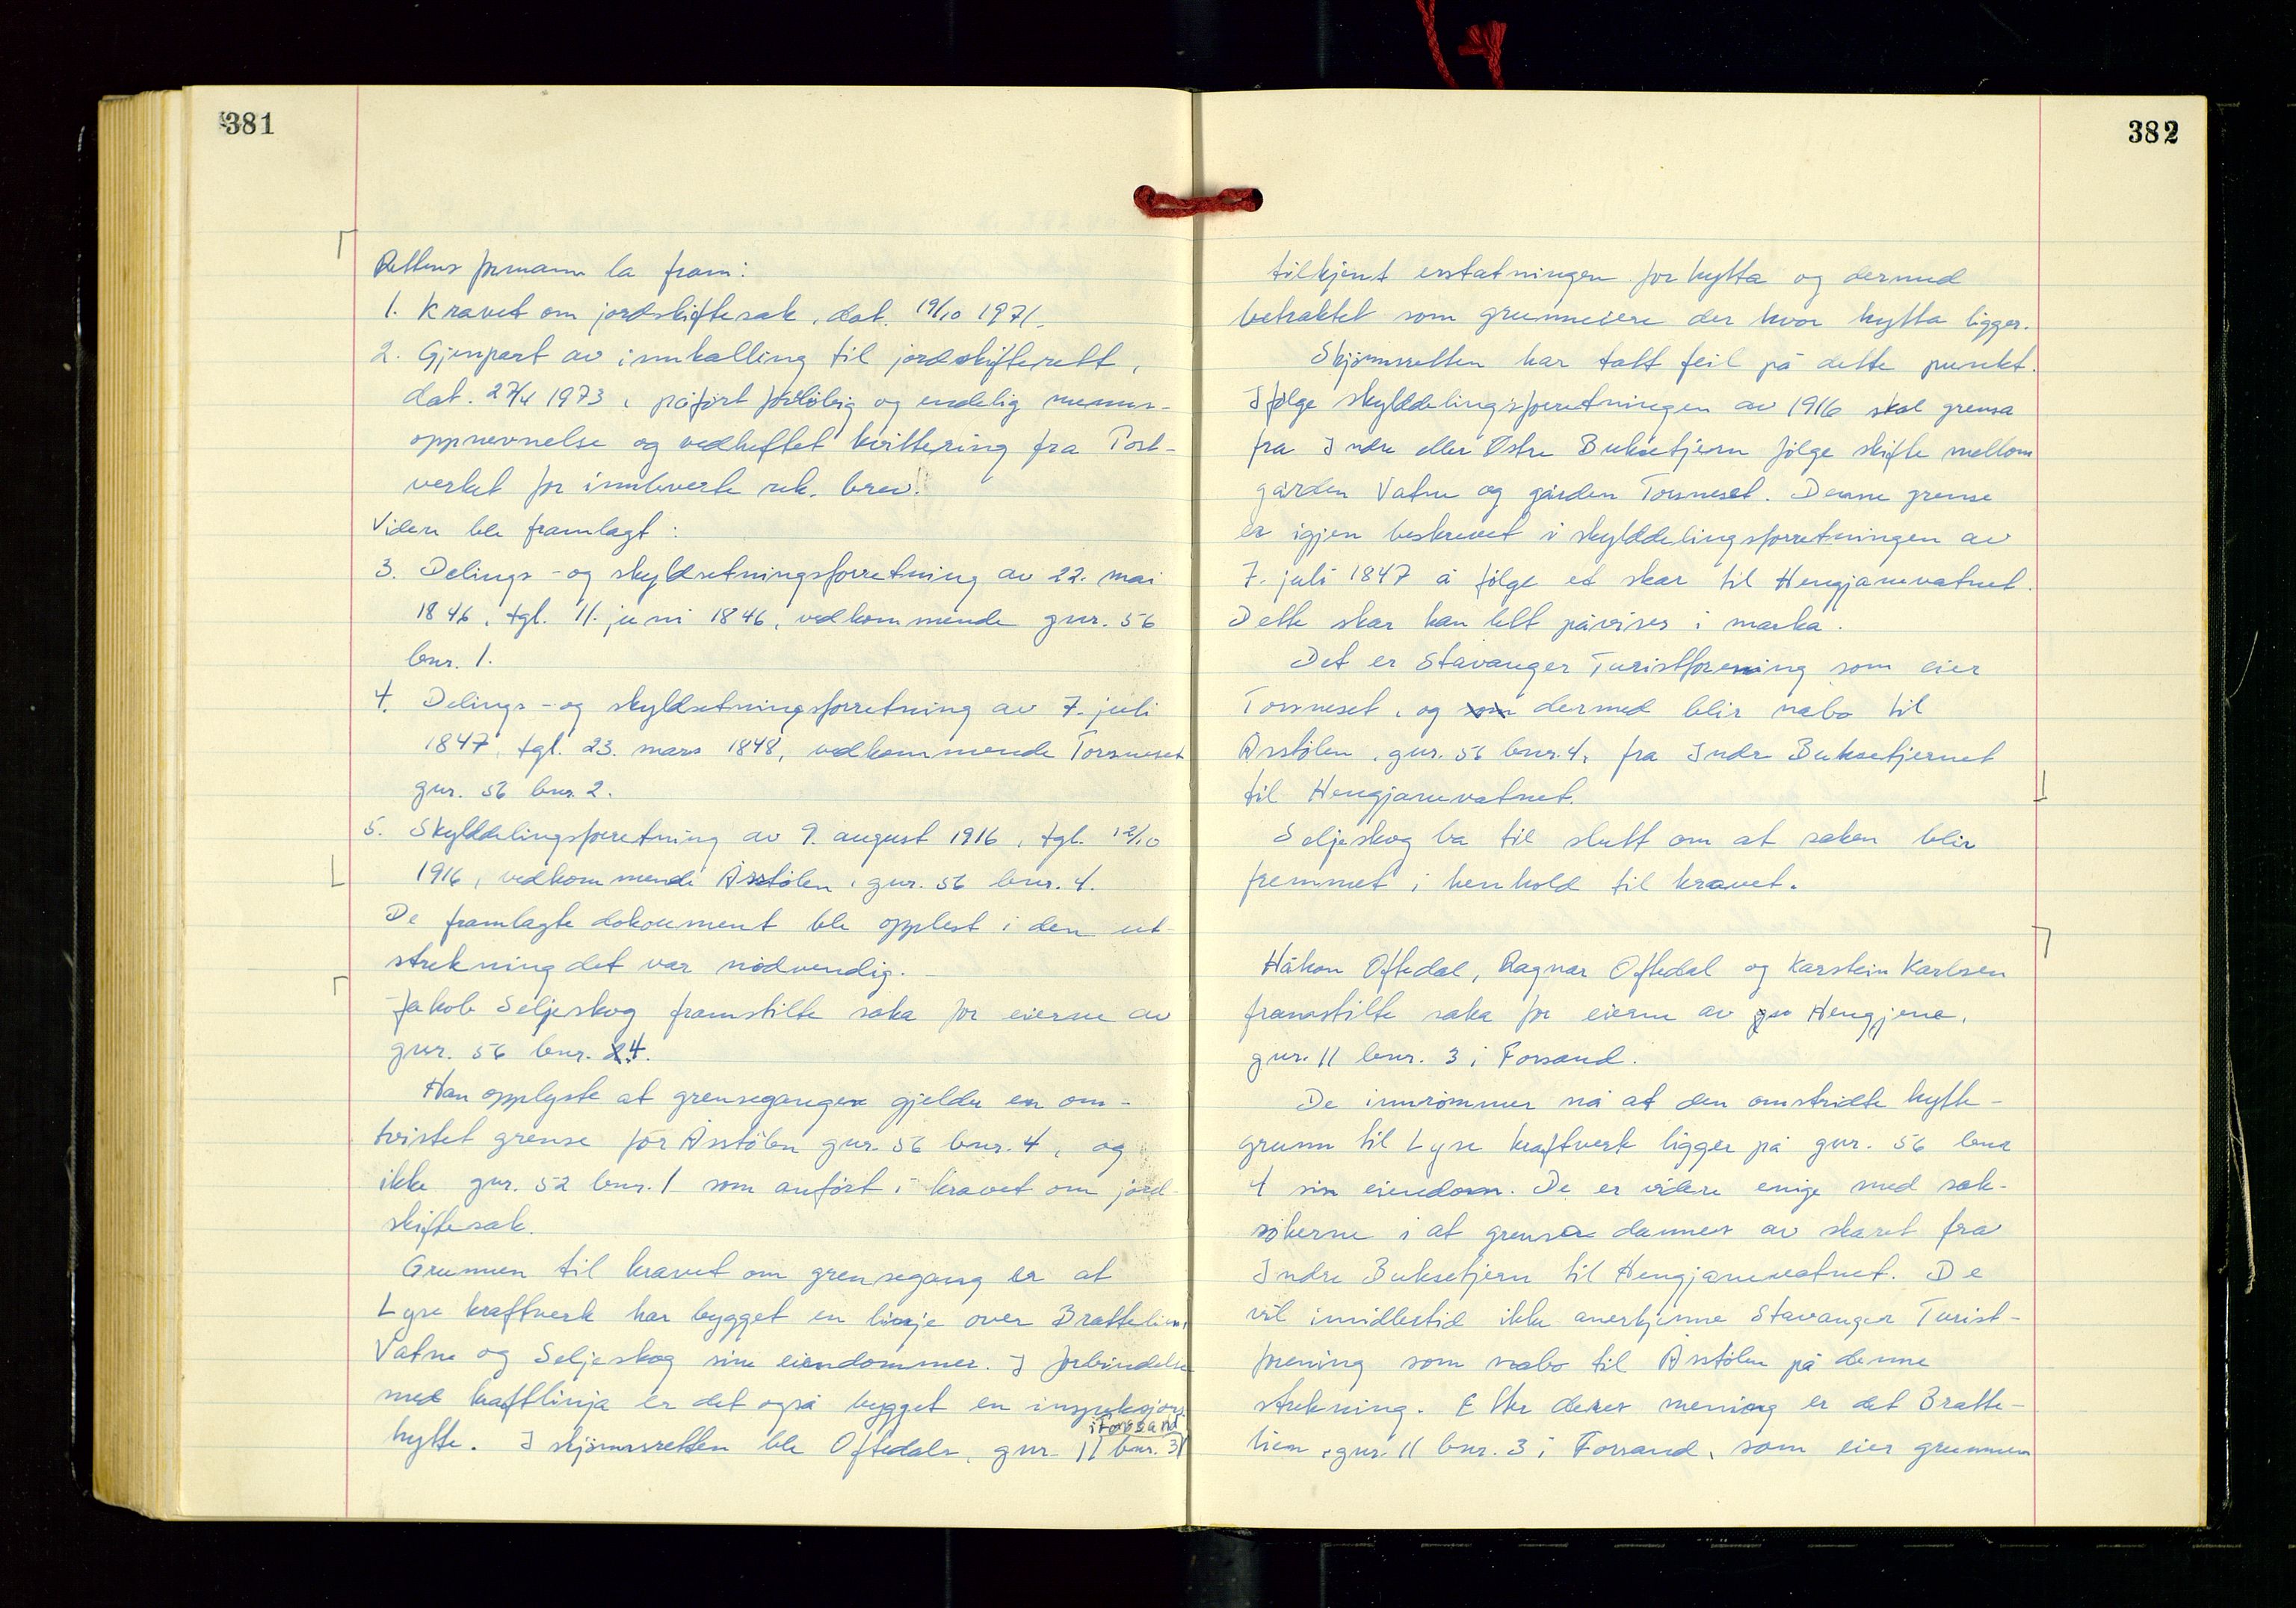 381
Rettens formann la fram:
1. Kravet om jordskiftesak, dat. 19/10 1971.
2. Gjenpart av innkalling til jordskifterett,
dat. 27/4 1973, påført foreløbig og endelig menns-
oppnevnelse og vedheftet kvittering fra Post-
verket for innleverte rek. brev.
Videre ble framlagt:
3. Delings- og skyldsetningsforretning av 22. mai
1846, tgl. 11. juni 1846, vedkommende gnr. 56
bnr. 1.
4. Delings- og skyldsetningsforretning av 7. juli
1847, tgl. 23. mars 1848, vedkommende Torsneset
gnr. 56 bnr. 2.
5. Skylddelingsforretning av 9. august 1916, tgl. 12/10
1916, vedkommende Åsstölen, gnr. 56 bnr. 4.
De framlagte dokument ble opplest i den ut-
strekning det var nödvendig.
Jakob Seljeskog framstilte saka for eierne av
gnr. 56 bnr. 4.
Han opplyste at grensegangen gjelder en om-
tvistet grense for Åsstölen gnr. 56 bnr. 4, og
ikke gnr. 52 bnr. 1 som anfört i kravet om jord-
skiftesak.
Grunnen til kravet om grensegang er at
Lyse kraftverk har bygget en linje over Brattelien,
Vatne og Seljeskog sine eiendommer. I forbindelse
med kraftlinja er det også bygget en inspeksjons-
hytte. I skjönnsretten ble Oftedals, gnr. 11 bnr. 3
i Forsand
382
tilkjent erstatningen for hytta og dermed
betraktet som grunneiere der hvor hytta ligger.
Skjönnsretten har tatt feil på dette punkt.
Ifölge skylddelingsforretningen av 1916 skal grensa
fra Indre eller Östre Buksetjern fölge skifte mellom
gården Vatne og gården Torsneset. Denne grense
er igjen beskrevet i skylddelingsforretningen av
7. juli 1847 å fölge et skar til Hengjanevatnet.
Dette skar kan lett påvises i marka.
Det er Stavanger Turistforening som eier
Torsneset, og som dermed blir nabo til
Åsstölen, gnr. 56 bnr. 4, fra Indre Buksetjernet
til Hengjanevatnet.
Seljeskog ba til slutt om at saken blir
fremmet i henhold til kravet.
Håkon Oftedal, Ragnar Oftedal og Karstein Karlsen
framstilte saka for eierne av Hengjane,
gnr. 11 bnr. 3 i Forsand.
De innrömmer nå at den omstridte hytte-
grunn til Lyse kraftverk ligger på gnr. 56 bnr
4 sin eiendom. De er videre enige med sak-
sökerne i at grensa dannes av skaret fra
Indre Buksetjern til Hengjanevatnet. De
vil imidlertid ikke anerkjenne Stavanger Turist-
forening som nabo til Åsstölen på denne
strekning. Etter deres mening er det Bratte-
lien, gnr. 11 bnr. 3 i Forsand, som eier grunnen